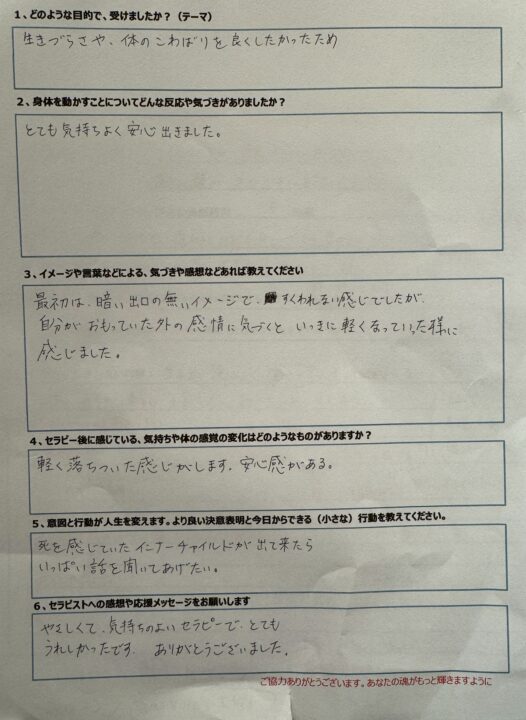 1、どのような目的で、受けましたか？（テーマ）
生きづらさや、体のこわばりを良くしたかったため
2、身体を動かすことについてどんな反応や気づきがありましたか？
とても気持ちよく安心出きました。
3、イメージや言葉などによる、気づきや感想などあれば教えてください
最初は、暗い出口の無いイメージで、すくわれない感じでしたが、
自分がおもっていた外の感情に気づくといっきに軽くなっていった様に
感じました。
4、セラピー後に感じている、気持ちや体の感覚の変化はどのようなものがありますか？
軽く落ちついた感じがします。安心感がある。
5、意図と行動が人生を変えます。より良い決意表明と今日からできる（小さな）行動を教えてください。
死を感じていたインナーチャイルドが出て来たら
いっぱい話を聞いてあげたい。
6、セラピストへの感想や応援メッセージをお願いします
やさしくて、気持ちのよいセラピーで、とても
うれしかったです。 ありがとうございました。
ご協力ありがとうございます。あなたの魂がもっと輝きますように